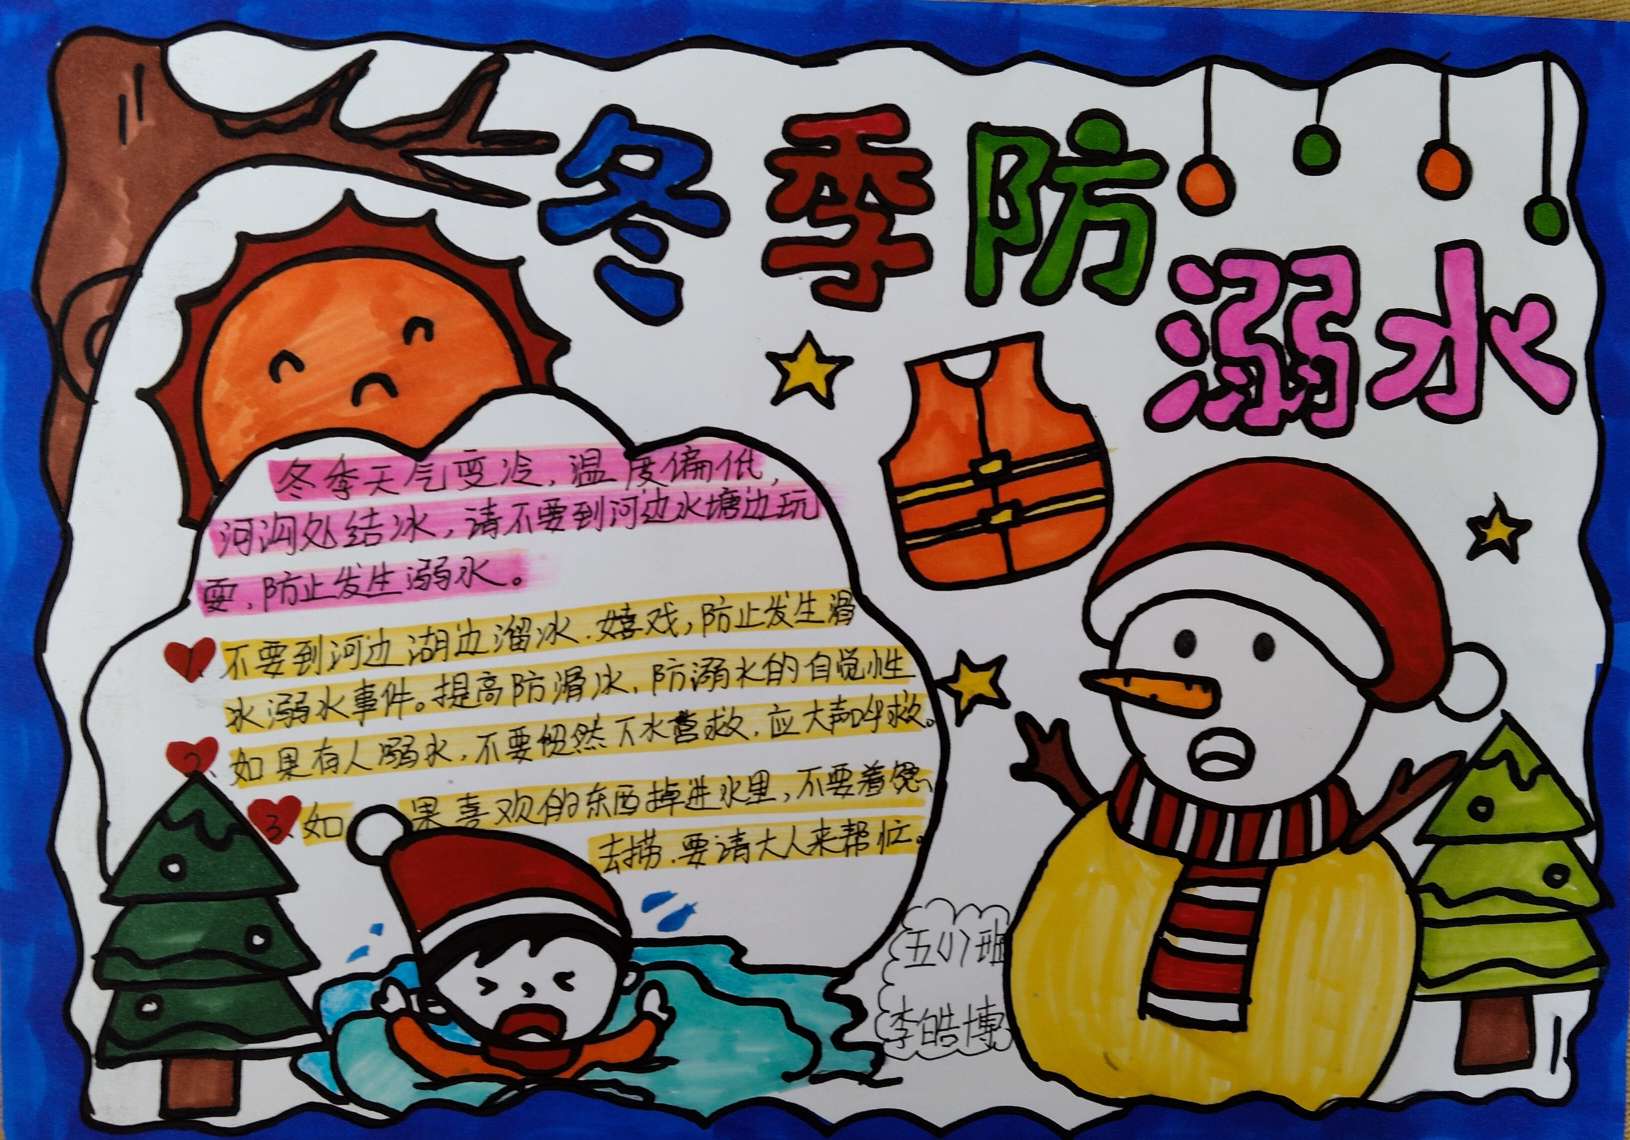 冬季防
溺水
冬季天气变冷,温度偏低,
河沟处结冰,请不要到河边水塘边玩
耍,防止发生溺水。
1.不要到河边湖边溜冰.嬉戏,防止发生滑
冰溺水事件。提高防滑冰、防溺水的自觉性
2.如果有人溺水,不要贸然下水营救.应大声呼救。
3、如果喜欢的东西掉进水里,不要着急、
去捞.要请大人来帮忙。
五(1)班
李皓博